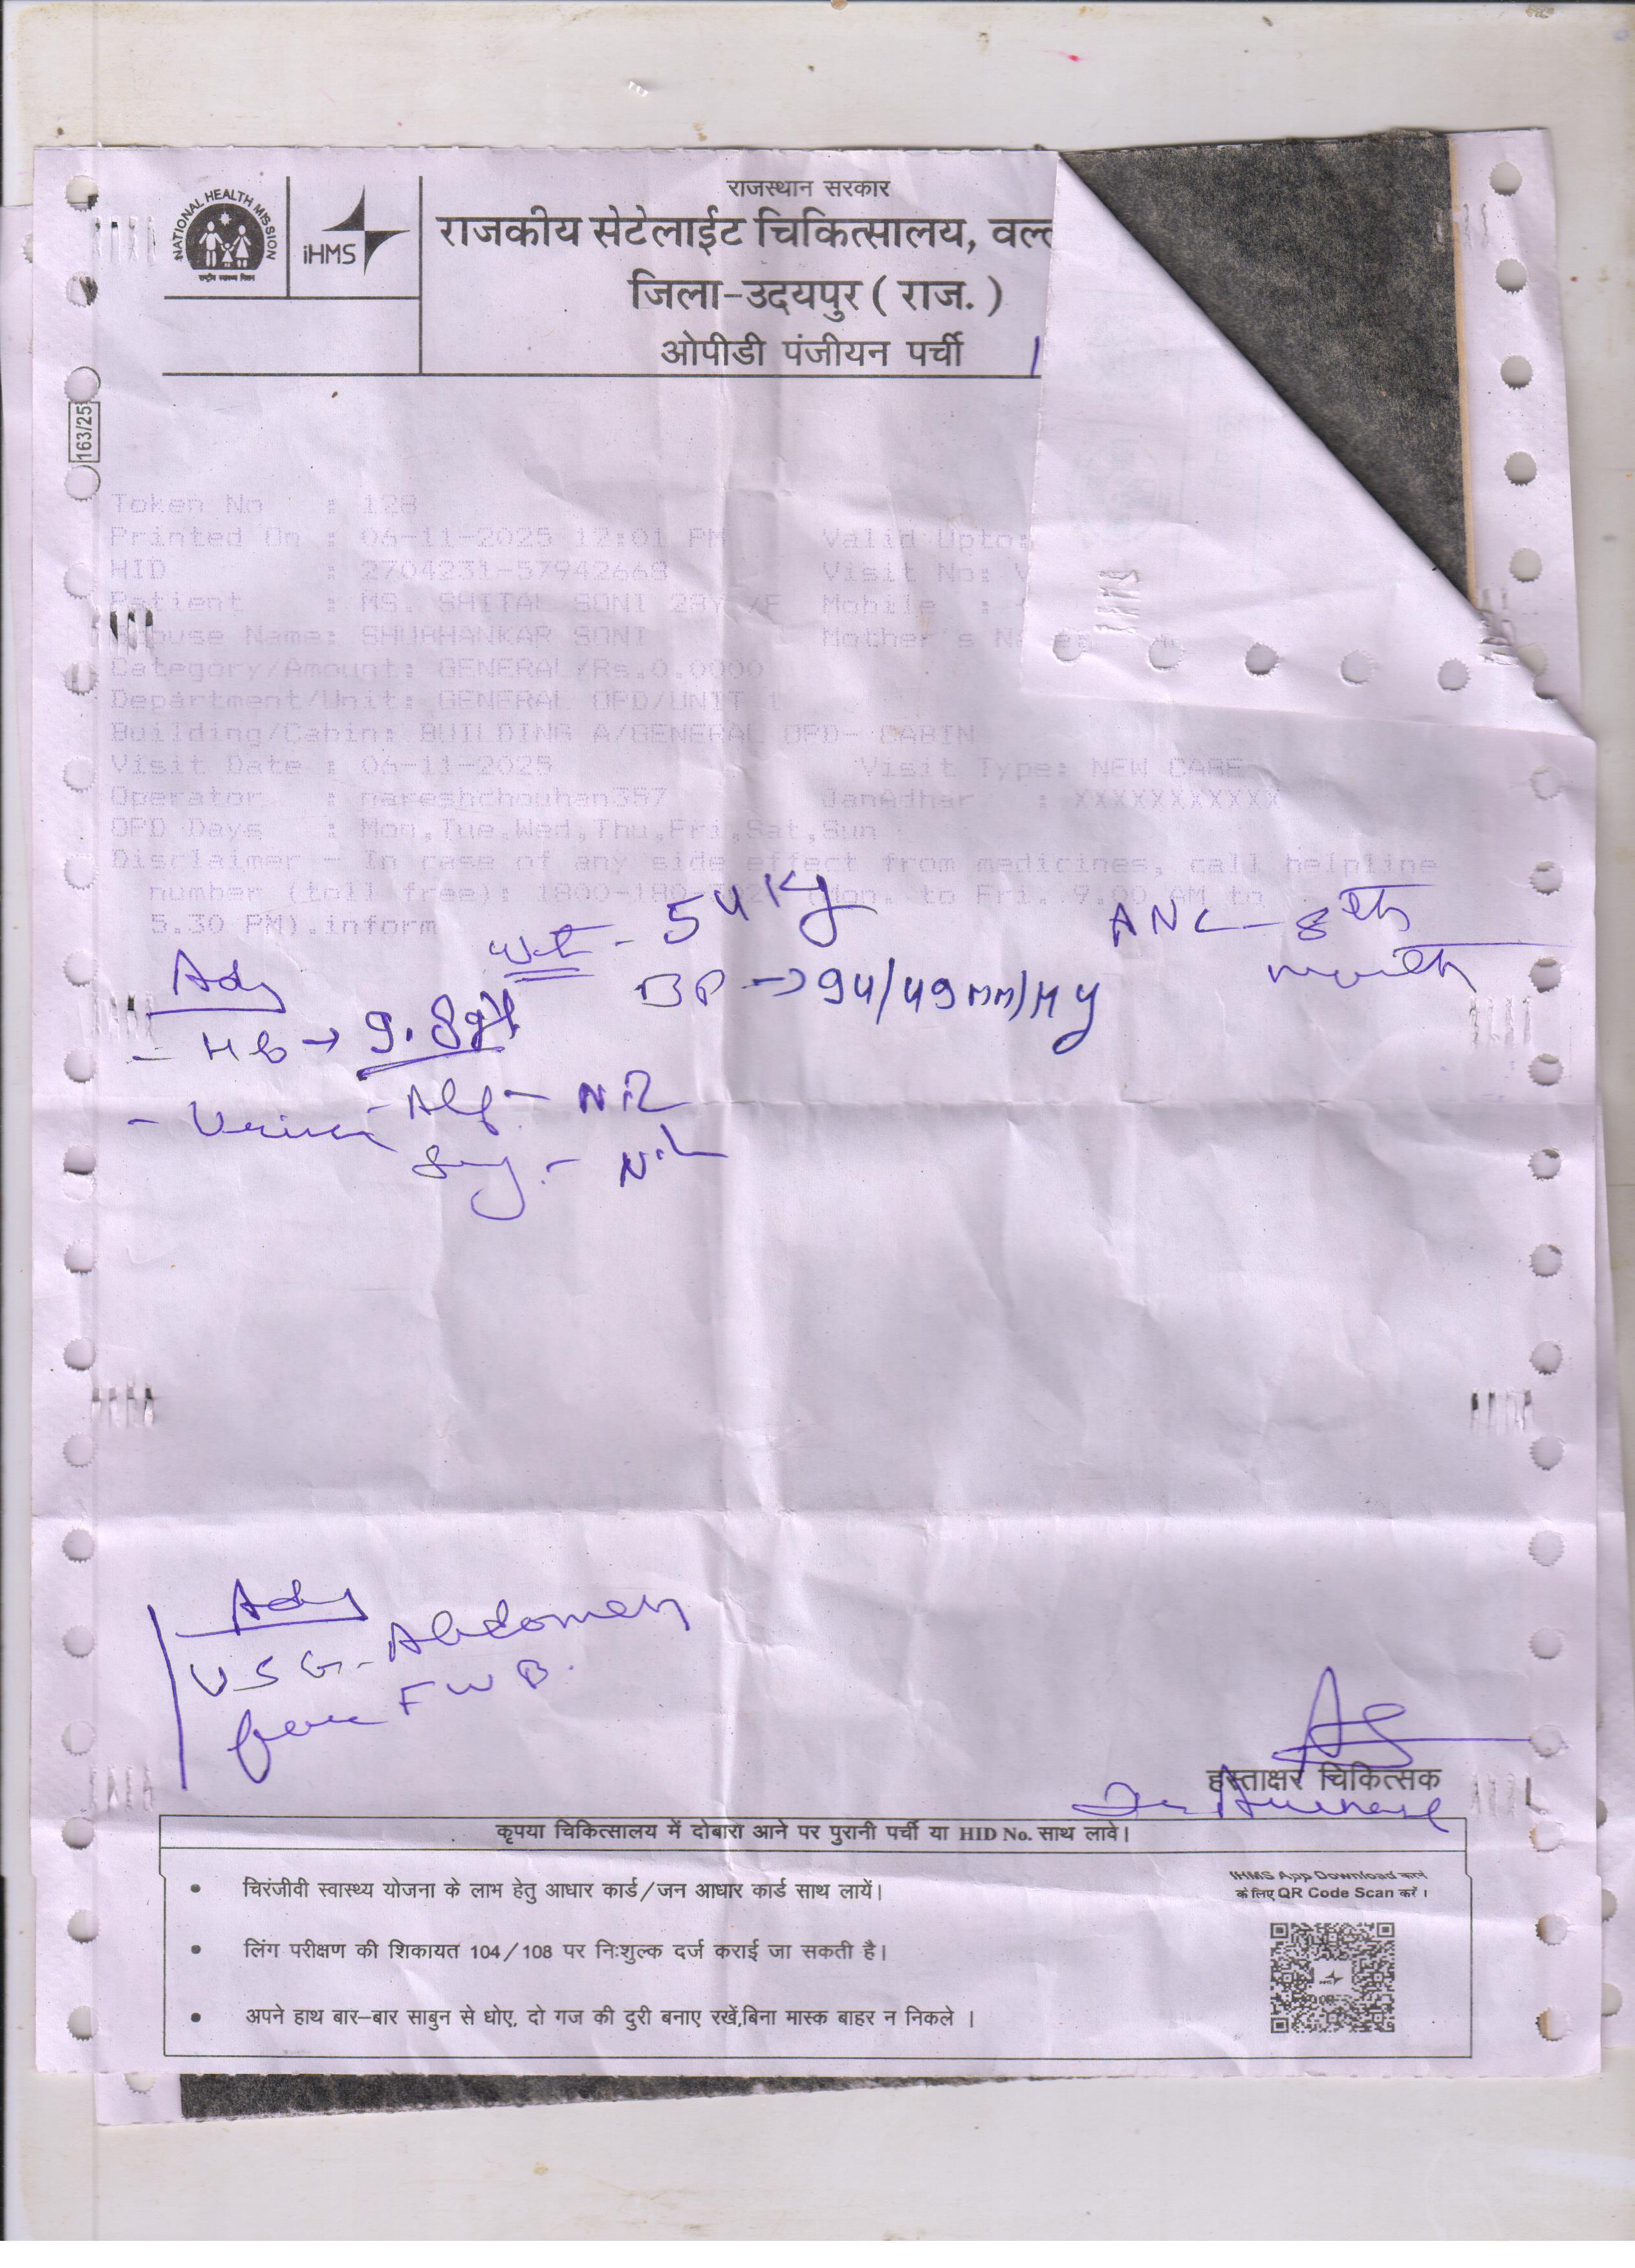 राजस्थान सरकार
NATIONAL HEALTH MISSION
राष्ट्रीय स्वास्थ्य मिशन
iHMS
राजकीय सेटेलाईट चिकित्सालय,
जिला-उदयपुर ( राज. )
ओपीडी पंजीयन पर्ची
163/25
Token No : 128
Printed On : 06-11-2025 12:01 PM Valid Upto:
HID : 2704231-57942668 Visit No:
Patient : MS. SHITAL SONI 28Y /F Mobile :
Spouse Name: SHUBHANKAR SONI Mother's
Category/Amount: GENERAL/Rs.0.0000
Department/Unit: GENERAL OPD/UNIT 1
Building/Cabin: BUILDING A/GENERAL OPD- CABIN
Visit Date : 06-11-2025 Visit Type: NEW CASE
Operator : nareshchouhan357 JanAdhar : XXXXXXXXXXX
OPD Days : Mon,Tue,Wed,Thu,Fri,Sat,Sun
Disclaimer - In case of any side effect from medicines, call helpline
number (toll free): (Mon. to Fri. 9.00 AM to
5.30 PM).inform
Wt - 54 Kg ANC - 8th
month
Adv BP → 94/49 mm/Hg
- HB → 9.8
- Urine - Alb - Nil
Sug - Nil
Adv
USG - Abdomen
for FWB.
हस्ताक्षर चिकित्सक
Dr
कृपया चिकित्सालय में दोबारा आने पर पुरानी पर्ची या HID No. साथ लावे।
• चिरंजीवी स्वास्थ्य योजना के लाभ हेतु आधार कार्ड/जन आधार कार्ड साथ लायें।
• लिंग परीक्षण की शिकायत 104/108 पर निःशुल्क दर्ज कराई जा सकती है।
• अपने हाथ बार-बार साबुन से धोए, दो गज की दुरी बनाए रखें,बिना मास्क बाहर न निकले ।
IHMS App Download करने
के लिए QR Code Scan करें ।